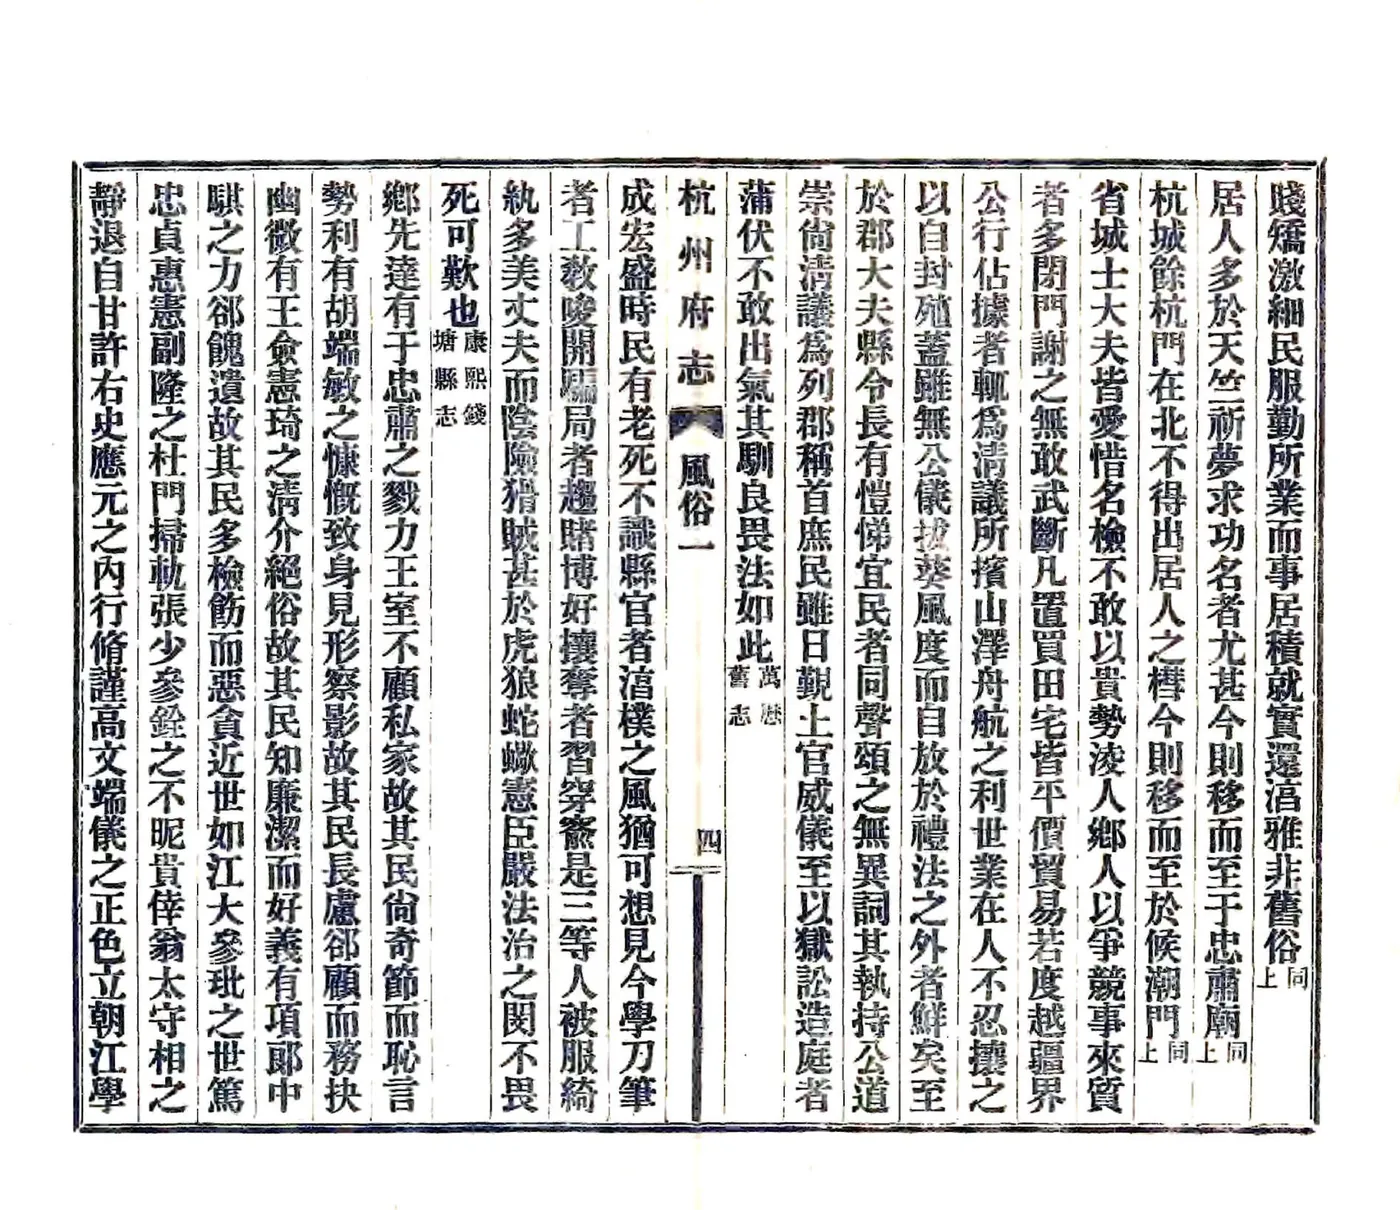 賤矯激細民服勤所業而事居積就實還湻雅非舊俗同上
居人多於天竺祈夢求功名者尤甚今則移而至于忠肅廟同上
杭城餘杭門在北不得出居人之櫘今則移而至於候潮門同上
省城士大夫皆愛惜名檢不敢以貴勢淩人鄉人以爭競事來質
者多閉門謝之無敢武斷凡置買田宅皆平價貿易若度越疆界
公行佔據者輒爲淸議所擯山澤舟航之利世業在人不忍攘之
以自封殖蓋雖無公儀拔葵風度而自放於禮法之外者鮮矣至
於郡大夫縣令長有愷悌宜民者同聲頌之無異詞其執持公道
崇尙淸議爲列郡稱首庶民雖日覲土官威儀至以獄訟造庭者
蒲伏不敢出氣其馴良畏法如此萬歷舊志
杭州府志 風俗一 四
成宏盛時民有老死不識縣官者湻樸之風猶可想見今學刀筆
者工敎唆開騙局者趨賭博好攘奪者習穿窬是三等人被服綺
紈多美丈夫而陰險猾賊甚於虎狼蛇蠍憲臣嚴法治之閔不畏
死可歎也康熙錢塘縣志
鄉先達有于忠肅之戮力王室不顧私家故其民尙奇節而恥言
勢利有胡端敏之慷慨致身見形察影故其民長慮郤顧而務抉
幽微有王僉憲琦之淸介絕俗故其民知廉潔而好義有項郞中
騏之力郤餽遺故其民多檢飭而惡貪近世如江大參玭之世篤
忠貞惠憲副隆之杜門掃軌張少參銓之不昵貴倖翁太守相之
靜退自甘許右史應元之內行脩謹高文端儀之正色立朝江學